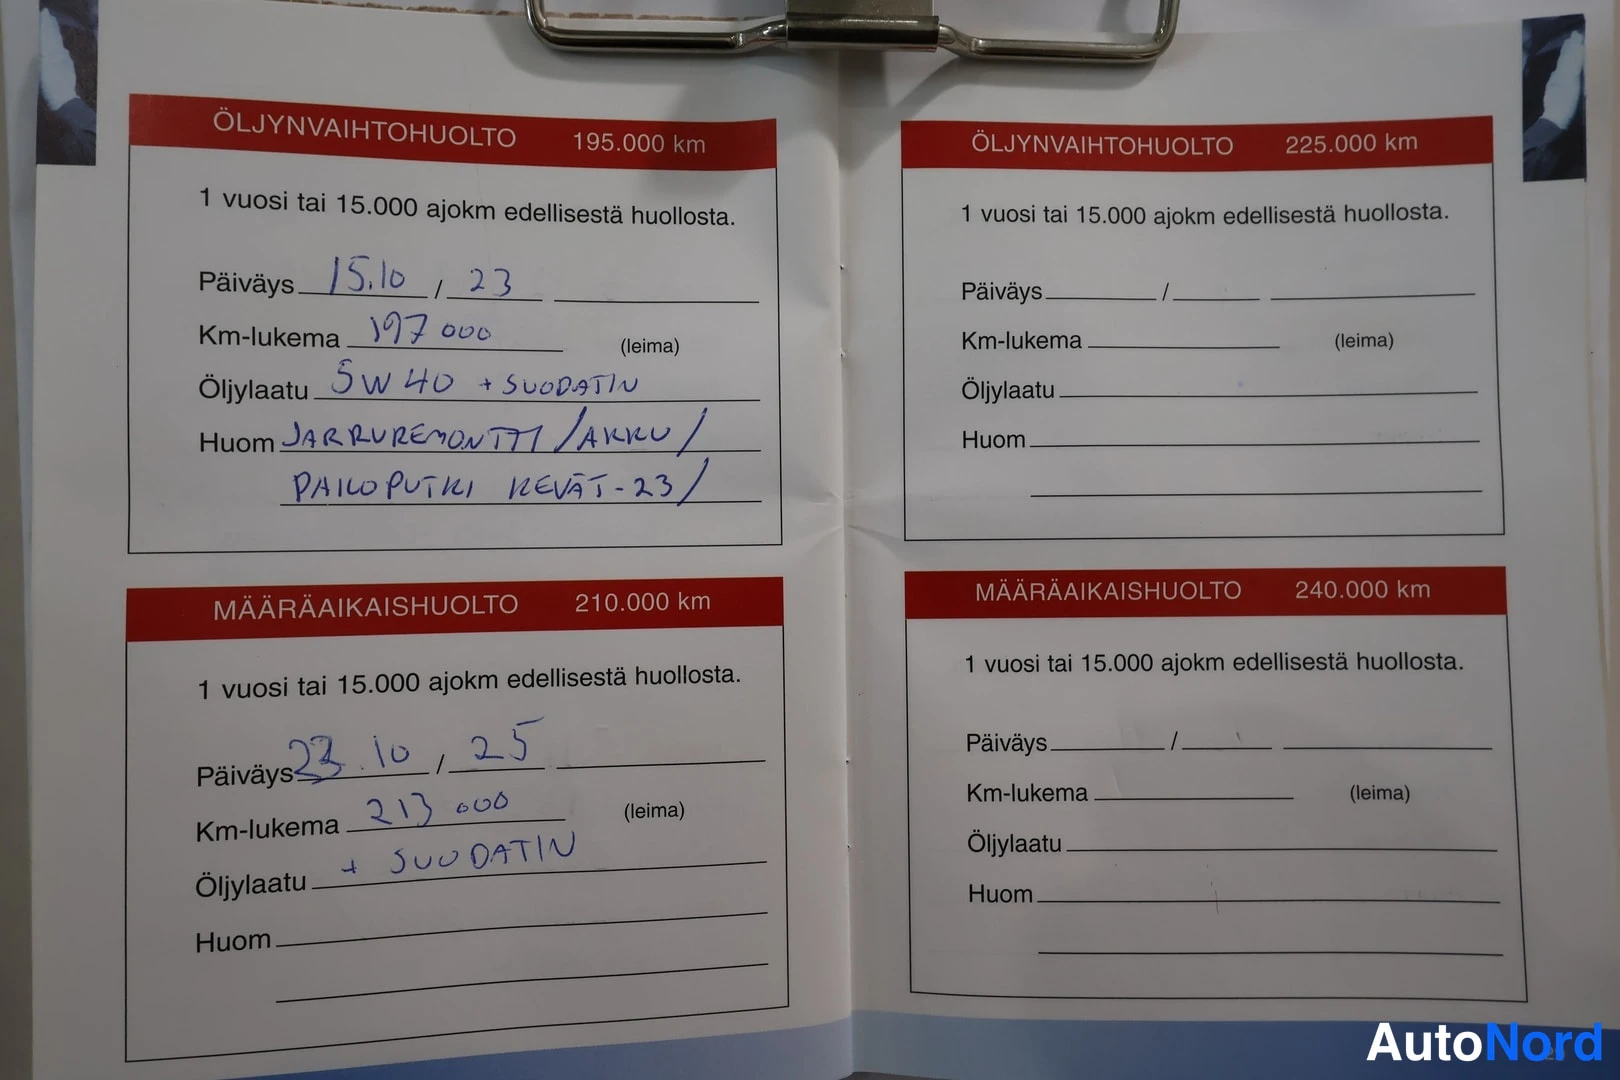 ÖLJYNVAIHTOHUOLTO 195.000 km
1 vuosi tai 15.000 ajokm edellisestä huollosta.
Päiväys 15.10 / 23
Km-lukema 197 000 (leima)
Öljylaatu 5W40 + SUODATIN
Huom JARRUREMONTTI / AKKU /
PAKOPUTKI KEVÄT-23 /
MÄÄRÄAIKAISHUOLTO 210.000 km
1 vuosi tai 15.000 ajokm edellisestä huollosta.
Päiväys 23.10 / 25
Km-lukema 213 000 (leima)
Öljylaatu + SUODATIN
Huom
ÖLJYNVAIHTOHUOLTO 225.000 km
1 vuosi tai 15.000 ajokm edellisestä huollosta.
Päiväys /
Km-lukema (leima)
Öljylaatu
Huom
MÄÄRÄAIKAISHUOLTO 240.000 km
1 vuosi tai 15.000 ajokm edellisestä huollosta.
Päiväys /
Km-lukema (leima)
Öljylaatu
Huom
AutoNord